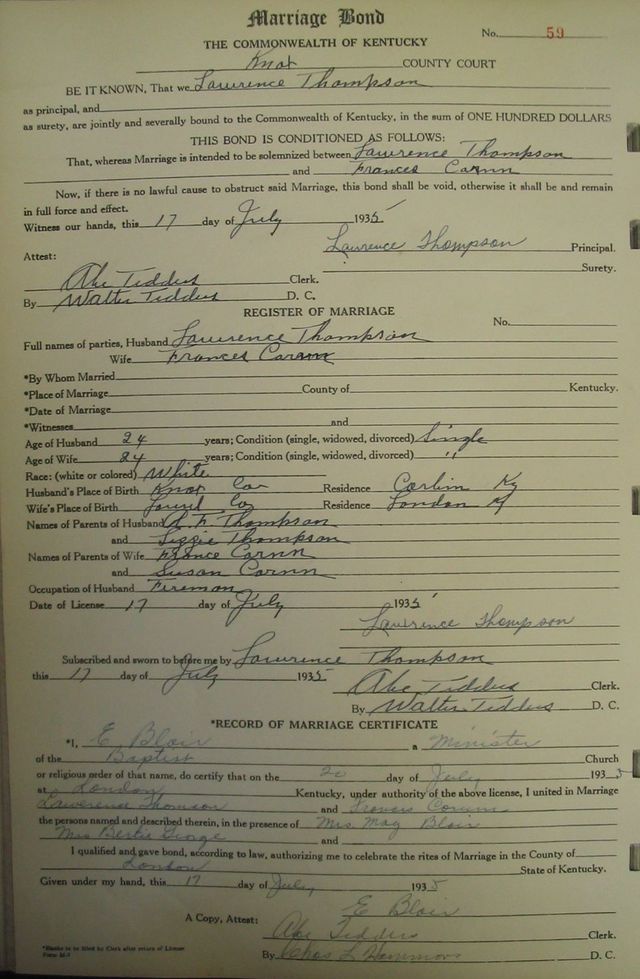 Marriage Bond
No. 59
THE COMMONWEALTH OF KENTUCKY
Knox COUNTY COURT
BE IT KNOWN, That we Lawrence Thompson
as principal, and
as surety, are jointly and severally bound to the Commonwealth of Kentucky, in the sum of ONE HUNDRED DOLLARS
THIS BOND IS CONDITIONED AS FOLLOWS:
That, whereas Marriage is intended to be solemnized between Lawrence Thompson
and Frances Cornn
Now, if there is no lawful cause to obstruct said Marriage, this bond shall be void, otherwise it shall be and remain
in full force and effect.
Witness our hands, this 17 day of July 1935
Lawrence Thompson Principal.
Attest: Surety.
Abe Tedders Clerk.
By Walter Tedders D. C.
REGISTER OF MARRIAGE
No.
Full names of parties, Husband Lawrence Thompson
Wife Frances Cornn
*By Whom Married
*Place of Marriage County of Kentucky.
*Date of Marriage
*Witnesses and
Age of Husband 24 years; Condition (single, widowed, divorced) Single
Age of Wife 24 years; Condition (single, widowed, divorced) "
Race: (white or colored) White
Husband's Place of Birth Knox Co Residence Corbin Ky
Wife's Place of Birth Laurel Co Residence London Ky
Names of Parents of Husband Thompson
and Lizzie Thompson
Names of Parents of Wife France Cornn
and Susan Cornn
Occupation of Husband Fireman
Date of License 17 day of July 1935
Lawrence Thompson
Subscribed and sworn to before me by Lawrence Thompson
this 17 day of July 1935
Abe Tedders Clerk.
By Walter Tedders D. C.
*RECORD OF MARRIAGE CERTIFICATE
*I, E Blair a Minister
of the Baptist Church
or religious order of that name, do certify that on the 20 day of July 193
at London Kentucky, under authority of the above license, I united in Marriage
Lawerence Thomson and Corinn
the persons named and described therein, in the presence of Mrs. May Blair
Mrs Bertie George and
I qualified and gave bond, according to law, authorizing me to celebrate the rites of Marriage in the County of
London State of Kentucky.
Given under my hand, this 17 day of July, 1935
E Blair
A Copy, Attest: Abe Tedders Clerk.
By Chas L Hammons D. C.
*Blanks to be filled by Clerk after return of License